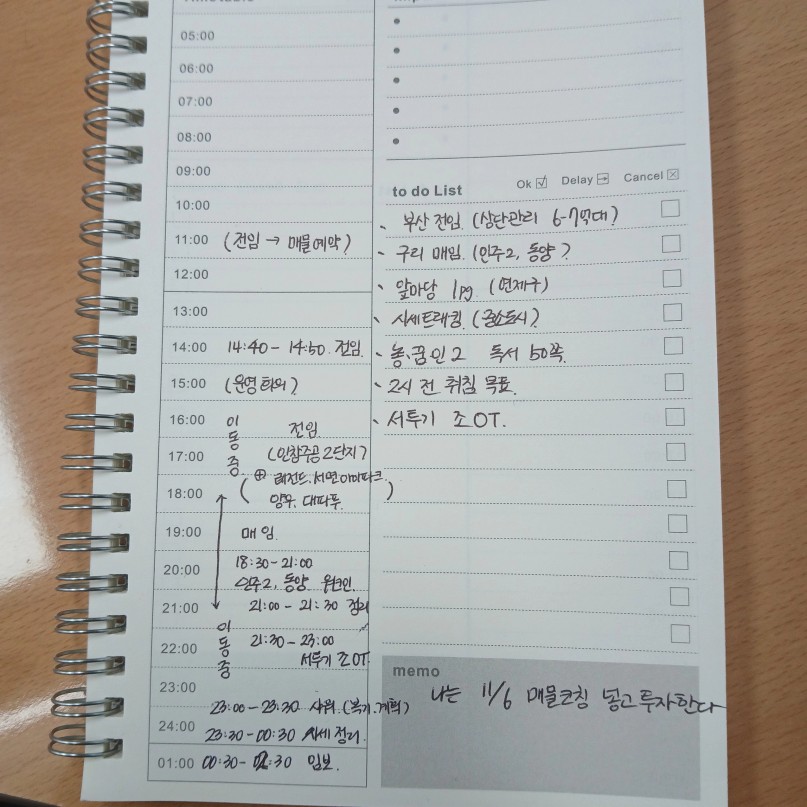 05:00
06:00
07:00
08:00
09:00
10:00
11:00 (전임 → 매물예약)
12:00
13:00
14:00 14:40 - 14:50 전임.
15:00 (운영회의)
16:00 이동중 전임.
17:00 (인창주공2단지)
18:00 ( ⊕ 레전드, 서면아이파크
양우, 대따푸. )
19:00 매임.
20:00 18:30 - 21:00
인주2, 동양
21:00 21:00 - 21:30 정리
22:00 이동중 21:30 - 23:00
서투기 조OT.
23:00
23:00 - 23:30 샤워. (복기.계획)
24:00 23:30 - 00:30 시세정리.
01:00 00:30 - 02:30 임보.
to do List Ok Delay Cancel
부산 전임. (삼단관리 6-7억대)
구리 매임. (인주2, 동양)
앞마당 1pg. (연제구)
시세트래킹. (중소도시)
농.꿈인2 독서 50쪽.
2시 전 취침 목표.
서투기 조OT.
memo
나는 11/6 매물코칭 넣고 투자한다